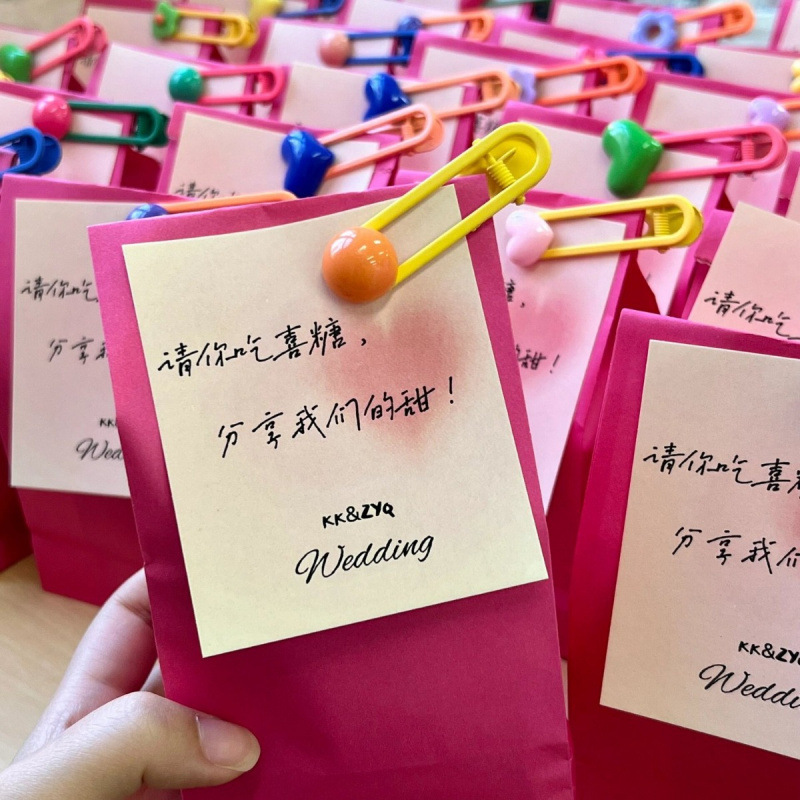 请你吃喜糖，
分享我们的甜！
KK&ZYQ
Wedding
请你吃
分享
KK&
Wed
甜！
请你吃
请你吃喜
分享我们
KK&ZY
Weddi